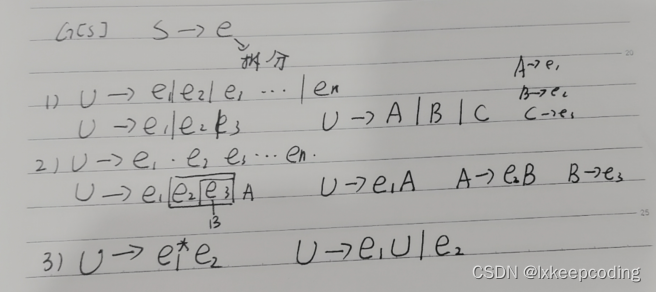 G[S] S → e
拆分
1) U → e₁|e₂|e₁ ⋯ |eₙ
U → e₁|e₂|e₃ U → A | B | C
A → e₁
B → e₂
C → e₃
2) U → e₁ · e₂ e₃ ⋯ eₙ.
U → e₁ e₂ e₃ A U → e₁A A → e₂B B → e₃
B
3) U → e₁* e₂ U → e₁U | e₂
20
25
CSDN @lxkeepcoding